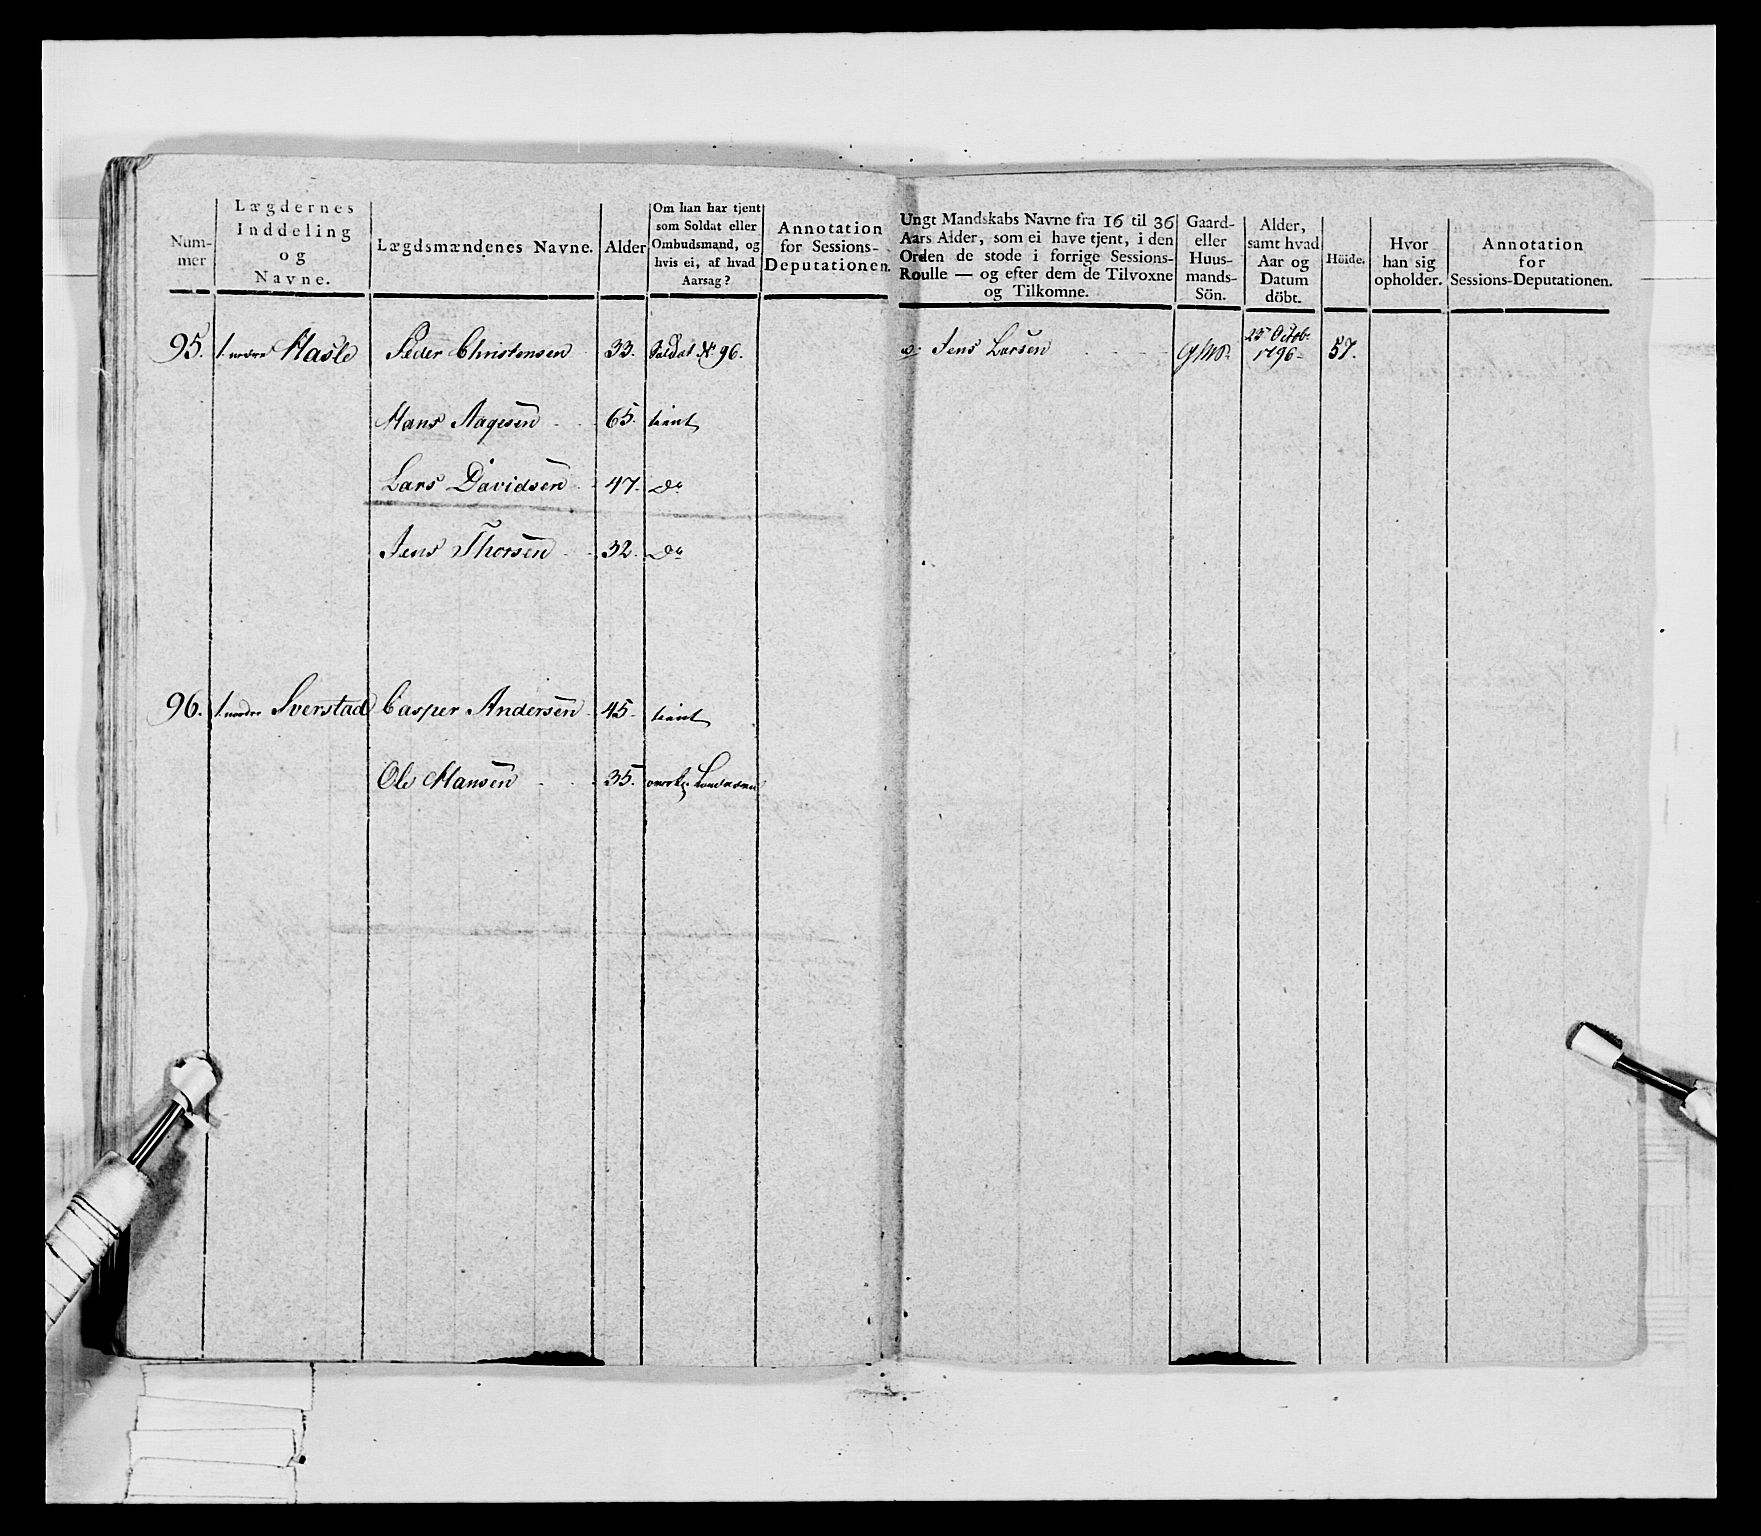 Num-
mer
Lægdernes
Inddeling
og
Navne.
Lægdsmændenes Navne.
Alder
Om han har tjent
som Soldat eller
Ombudsmand, og
hvis ei, af hvad
Aarsag?
Annotation
for Sessions-
Deputationen.
Ungt Mandskabs Navne fra 16 til 36
Aars Alder, som ei have tjent, i den
Orden de stode i forrige Sessions-
Roulle — og efter dem de Tilvoxne
og Tilkomne.
Gaard-
eller
Huus-
mands-
Sön.
Alder,
samt hvad
Aar og
Datum
döbt.
Höide.
Hvor
han sig
opholder.
Annotation
for
Sessions-Deputationen.
95. 1. nedre Hasle Peder Christensen 33. Soldat No 96. Jens Larsen 23 Octob. 1796 57.
Hans Aagesen 65. tient
Lars Davidsen 47. Do
Jens Thorsen 32. Do
96. 1. nedre Sverstad Casper Andersen 45. tient
Ole Hansen 35.